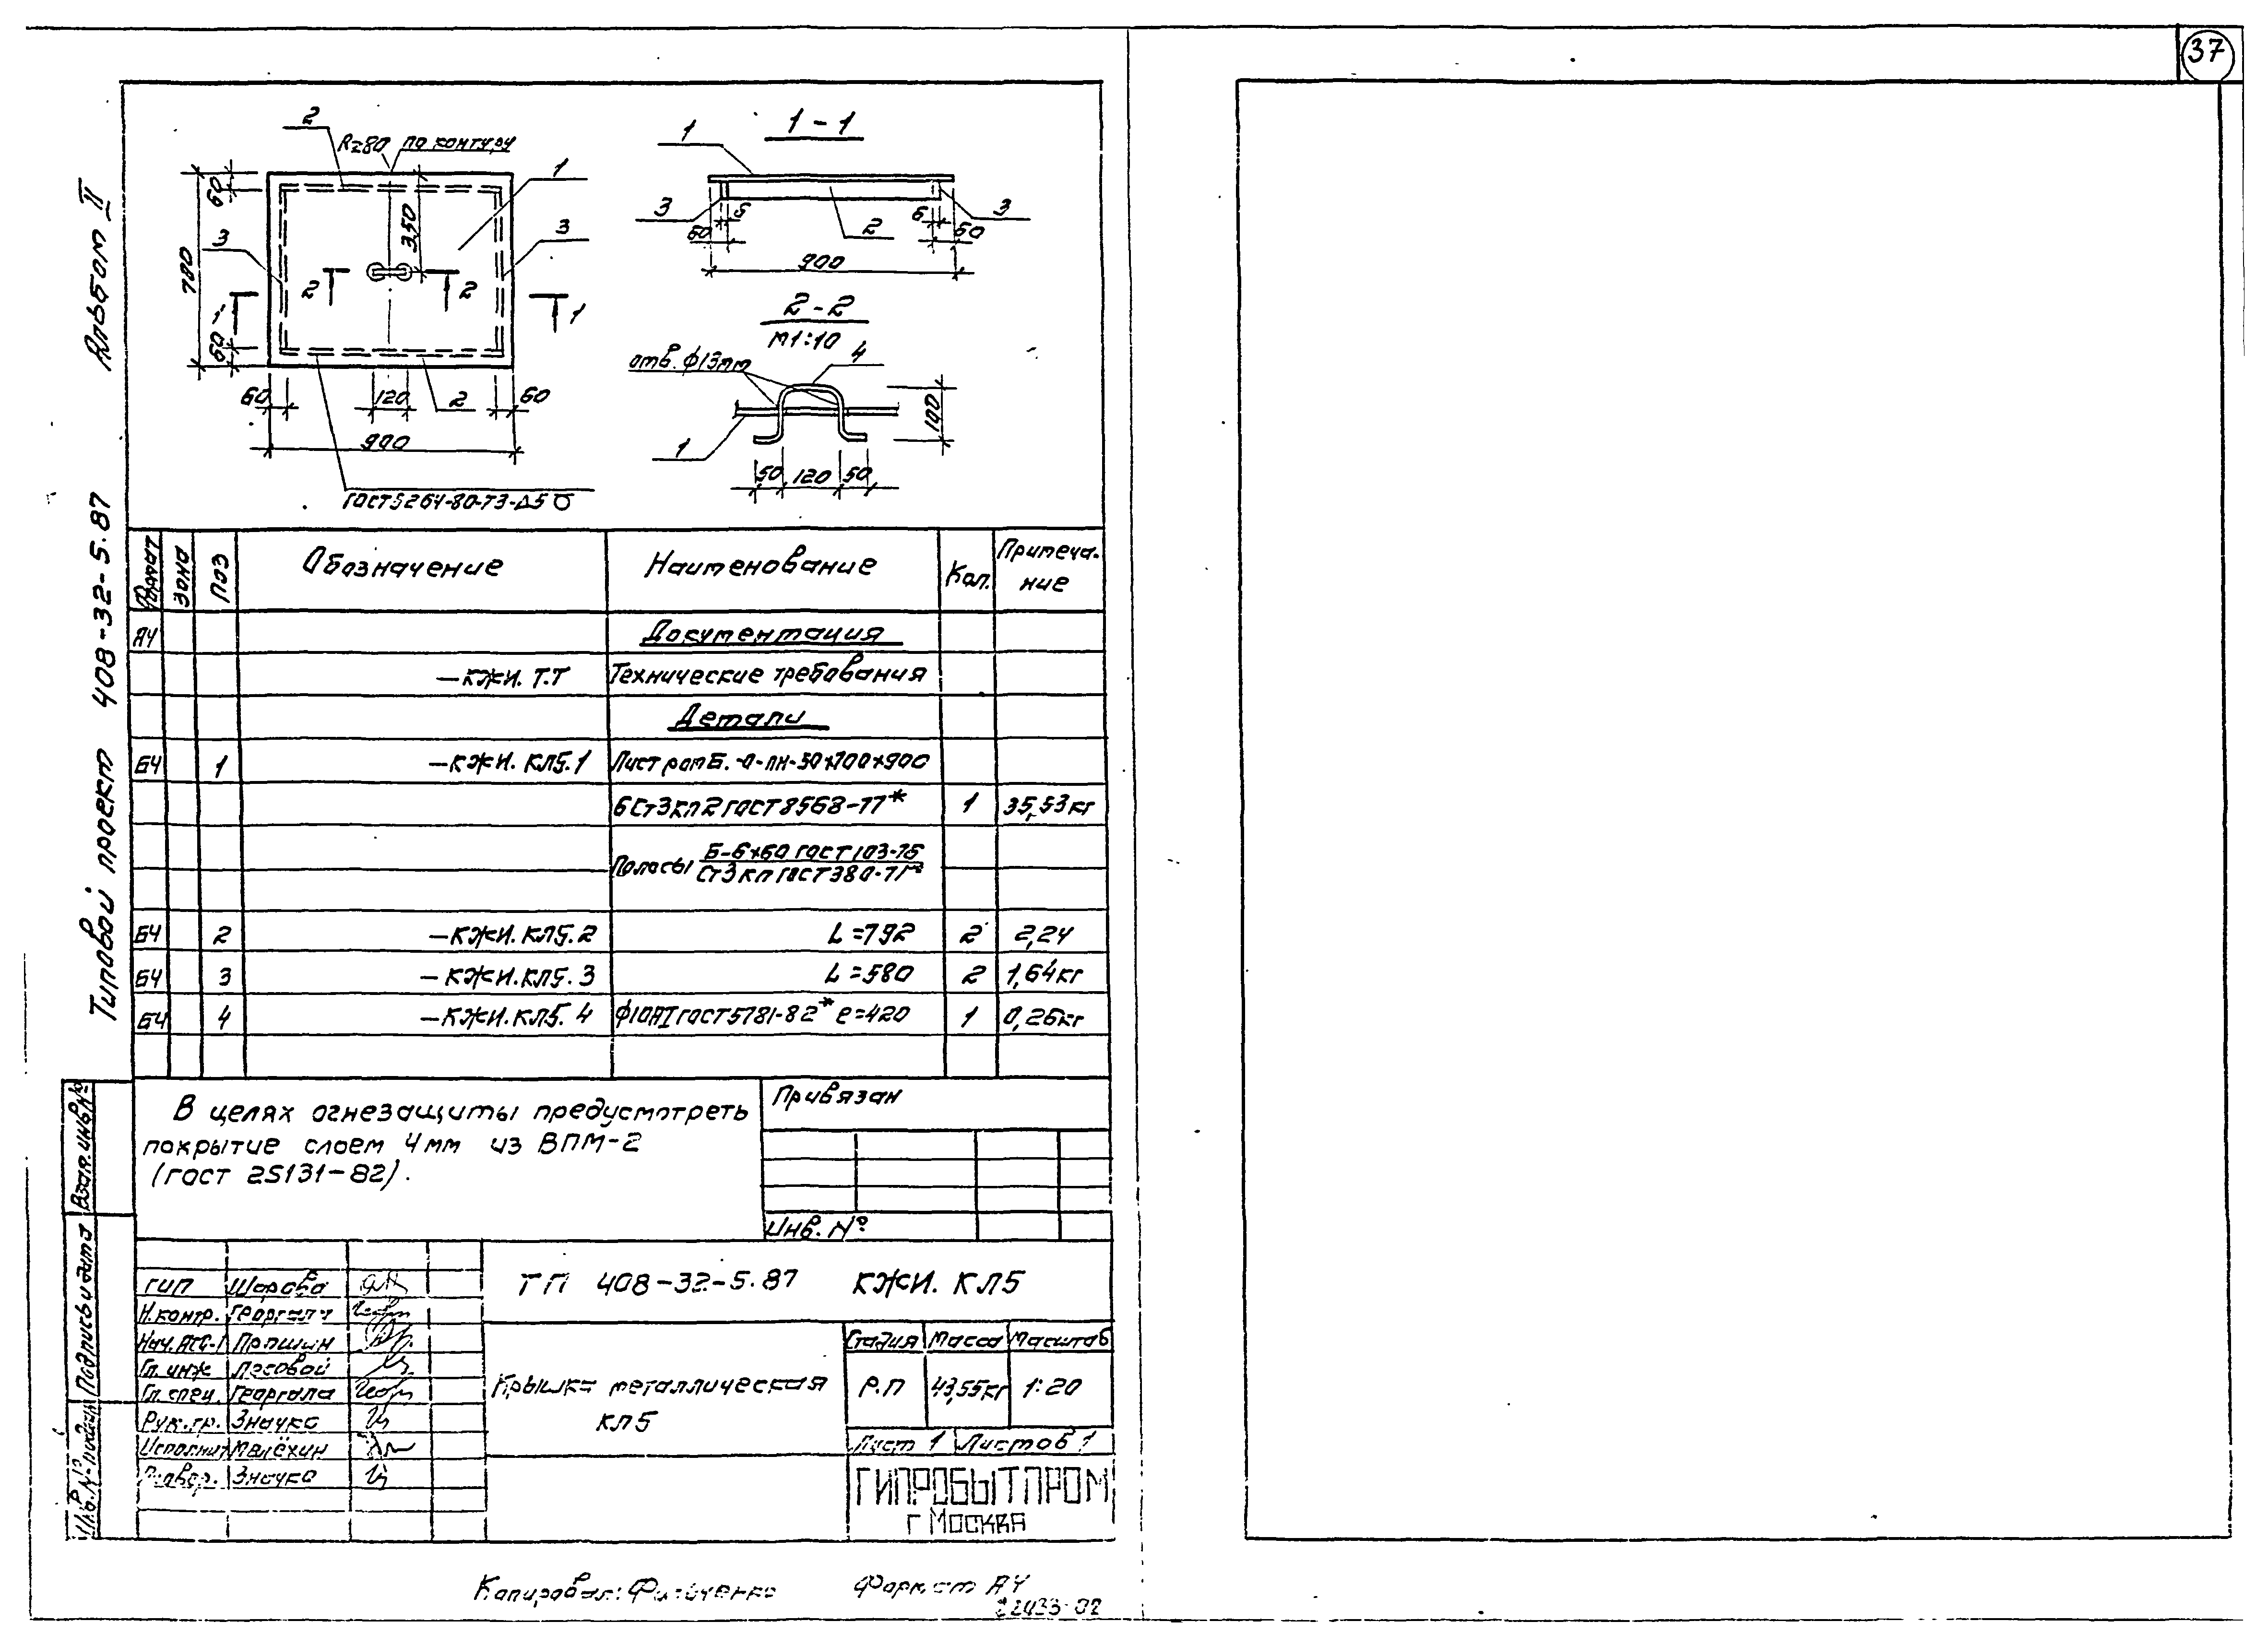 37
Альбом II
Типовой проект 408-32-5.87
2
Rz80 по контуру
1
60
350
3
3
780
2 2
1 1
60
60 120 2 60
900
ГОСТ 5264-80-Т3-△5
1-1
1
3 6 6 3
60 2 60
900
2-2
М1:10
отв. ф13мм 4
100
1
50 120 50
Формат Зона Поз Обозначение Наименование Кол. Примеча-
ние
А4 Документация
—КЖИ.Т.Т Технические требования
Детали
БЧ 1 —КЖИ.КЛ5.1 Лист ромб.
6 Ст3кп2 ГОСТ 8568-77* 1 35,53кг
Полосы Б-6х60 ГОСТ 103-76
Ст3кп ГОСТ 380-71*
БЧ 2 —КЖИ.КЛ5.2 L=792 2 2,24
БЧ 3 —КЖИ.КЛ5.3 L=580 2 1,64кг
БЧ 4 —КЖИ.КЛ5.4 ф10АI ГОСТ 5781-82* е=420 1 0,26кг
В целях огнезащиты предусмотреть
покрытие слоем 4мм из ВПМ-2
(ГОСТ 25131-82).
Привязан
Инв. №
Взам.инв.№
Подпись и дата
Инв.№ подл.
ТП 408-32-5.87 КЖИ.КЛ5
ГИП Шарова
Н.контр. Георгала
Нач.АСО-1 Прошин
Гл.инж Лесовой
Гл.спец. Георгала
Рук.гр. Значко
Исполнит Мелёхин
Провер. Значко
Крышка металлическая
КЛ5
Стадия Масса Масштаб
Р.П 43,55кг 1:20
Лист 1 Листов 1
ГИПРОБЫТПРОМ
г Москва
Копировал: Формат А4
22433-02